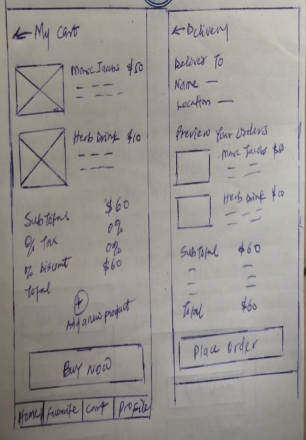 ← My Cart
Marc Jacobs $50
Herb Drink $10
Sub Total $60
% Tax 0%
% Discount 0%
Total $60
+
Add a new product
Buy Now
Home Favorite Cart Profile
← Delivery
Deliver To
Name —
Location —
Preview Your Orders
Marc Jacobs $50
Herb Drink $10
Sub Total $60
Total $60
Place Order